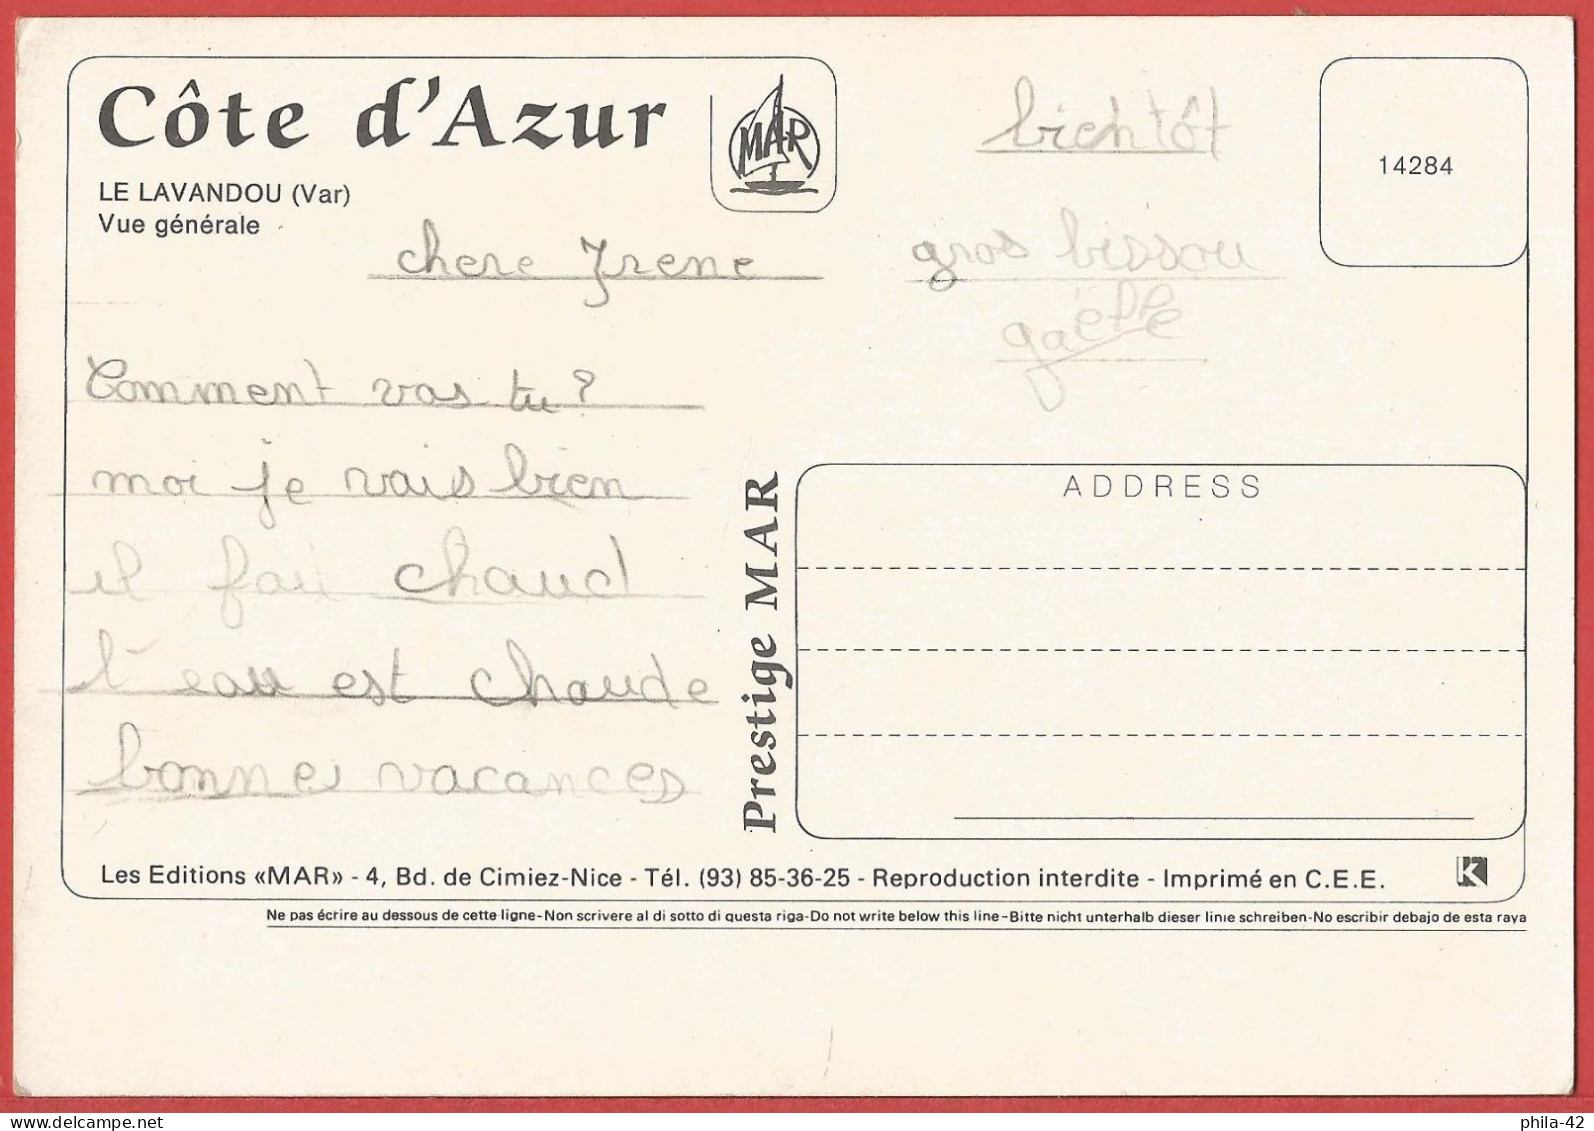 Côte d'Azur
MAR
LE LAVANDOU (Var)
Vue générale
chere Irene
Comment vas tu?
moi je vais bien
il fai chaud
l'eau est chaude
bonnes vacances
bientôt
gros bissou
gaëlle
14284
Prestige MAR
ADDRESS
Les Editions «MAR» - 4, Bd. de Cimiez-Nice - Tél. (93) 85-36-25 - Reproduction interdite - Imprimé en C.E.E.
K
Ne pas écrire au dessous de cette ligne-Non scrivere al di sotto di questa riga-Do not write below this line-Bitte nicht unterhalb dieser linie schreiben-No escribir debajo de esta raya
phila-42